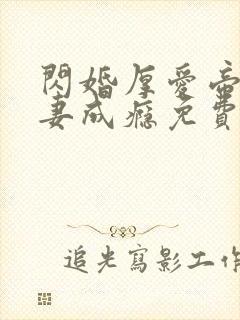 閃婚厚愛帝
妻成癮免費
追光寫影工作